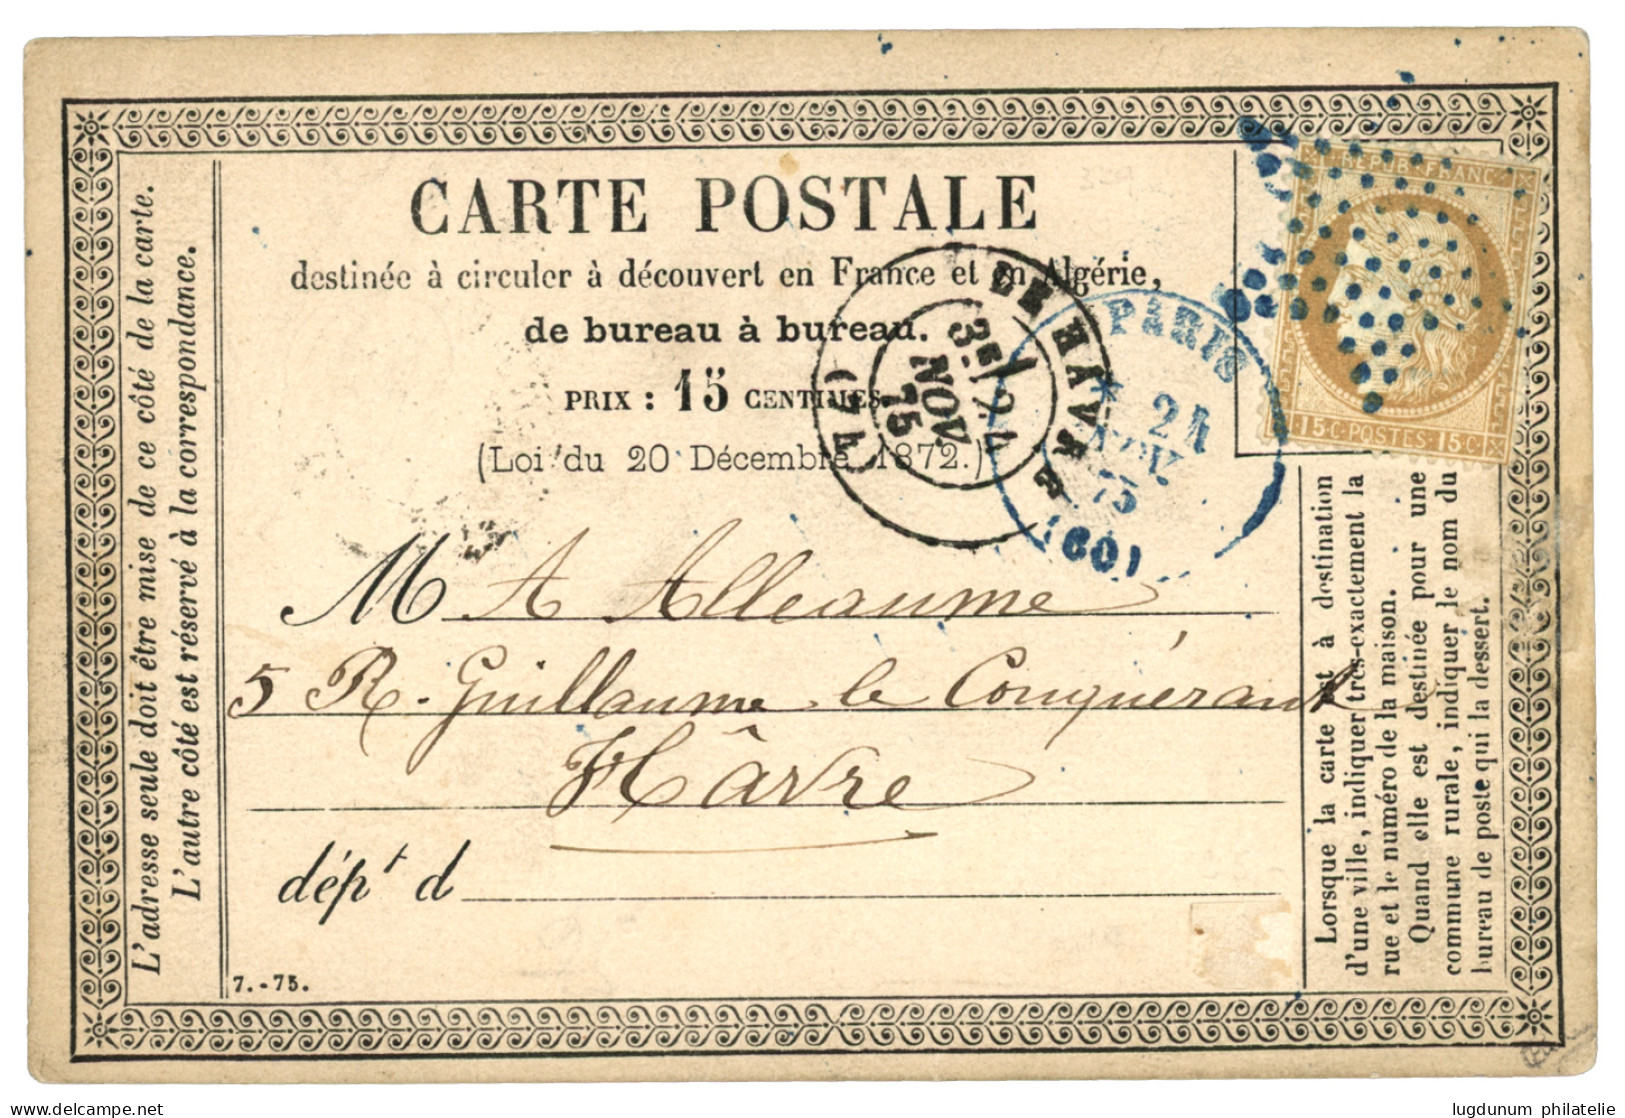 CARTE POSTALE
destinée à circuler à découvert en France et en Algérie,
de bureau à bureau.
PRIX : 15 CENTIMES
(Loi du 20 Décembre 1872.)
REPUB · FRANC
15 C · POSTES · 15 C
LE HÂVRE
3E / 24
NOV.
75
(74)
PARIS
24
NOV
75
(60)
M A Alleaume
5 R. Guillaume le Conquérant
Hâvre
dépt d
7.-75.
L'adresse seule doit être mise de ce côté de la carte.
L'autre côté est réservé à la correspondance.
Lorsque la carte est à destination
d'une ville, indiquer très-exactement la
rue et le numéro de la maison.
Quand elle est destinée pour une
commune rurale, indiquer le nom du
bureau de poste qui la dessert.
lugdunum philatelie